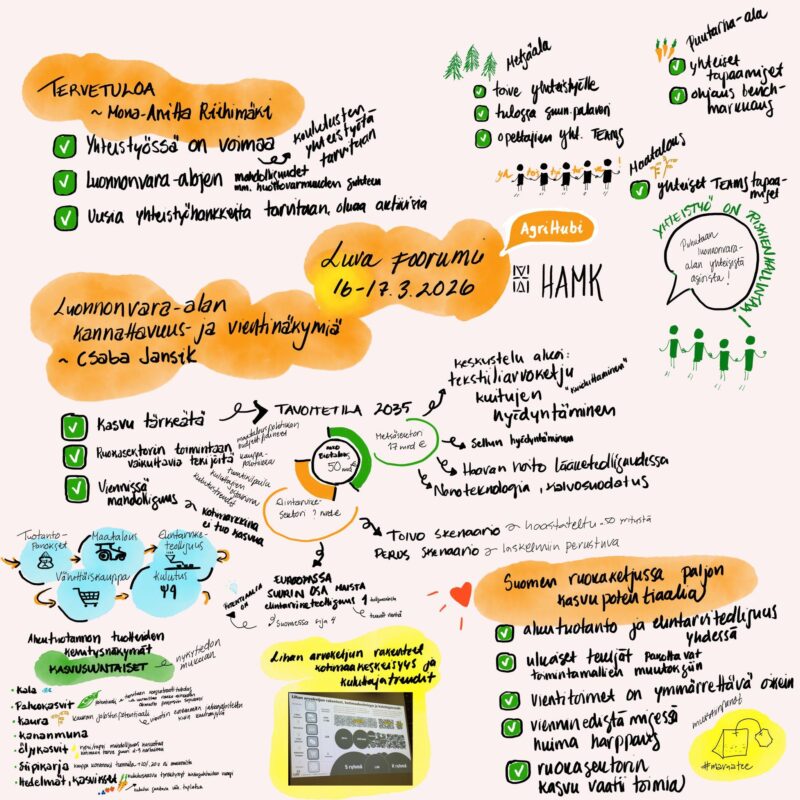 TERVETULOA
~ Mona-Anitta Riihimäki
Yhteistyössä on voimaa
koulutusten
yhteistyötä
tarvitaan
Luonnonvara-alojen
mahdollisuudet
mm. huoltovarmuuden suhteen
Uusia yhteistyöhankkeita tarvitaan, ollaan aktiivisia
Metsäala
toive yhteistyölle
tulossa suun. palaveri
opettajien yht. TEAMS
Puutarha-ala
yhteiset
tapaamiset
ohjaus bench-
markkaus
Maatalous
yhteiset TEAMS tapaa-
miset
YHTEISTYÖ ON RISKIENHALLINTAA!
Puhutaan
luonnonvara-
alan yhteisistä
asioista!
AgriHubi
Luva Foorumi
16-17.3.2026
HAMK
Luonnonvara-alan
kannattavuus- ja vientinäkymiä
~ Csaba Jansik
Kasvu tärkeätä
TAVOITETILA 2035
Ruokasektorin toimintaan
vaikuttavia tekijöitä
kauppa-
politiikka
Viennissä
mahdollisuus
kotimarkkina
ei tuo kasvua
Biotalous
50 mrd €
Metsäsektori
17 mrd €
Elintarvike-
sektori ? mrd €
Keskustelu alkoi:
tekstiiliarvoketju
kuitujen
"kuiduttaminen"
hyödyntäminen
Sellun hyödyntäminen
Haavan hoito lääketeollisuudessa
Nanoteknologia, kalvosuodatus
TOIVO skenaario
haastateltu ~50 yritystä
PERUS skenaario
laskelmiin perustuva
EUROOPASSA
SUURIN OSA MAISTA
elintarviketeollisuus
Suomessa sija 4
POTENTIAALIA
ON
Tuotanto-
panokset
Maatalous
Elintarvike-
teollisuus
Vähittäiskauppa
Kulutus
Alkutuotannon tuotteiden
kehitysnäkymät
KASVUSUUNTAISET
nykytiedon
mukaan
Kala
Palkokasvit
Kaura
kauran jalostuspotentiaali
Kananmuna
Öljykasvit
Siipikarja
Hedelmät, kasvikset
Lihan arvoketjun rakenteet
kotimaakeskeisyys ja
kuluttajatrendit
Suomen ruokaketjussa paljon
kasvupotentiaalia
alkutuotanto ja elintarviketeollisuus
yhdessä
ulkoiset tekijät pakottavat
toimintamallien muutoksiin
vientitoimet on ymmärrettävä oikein
vienninedistämisessä
huima harppaus
ruokasektorin
kasvu vaatii toimia
muistiinpanot
#mamatee